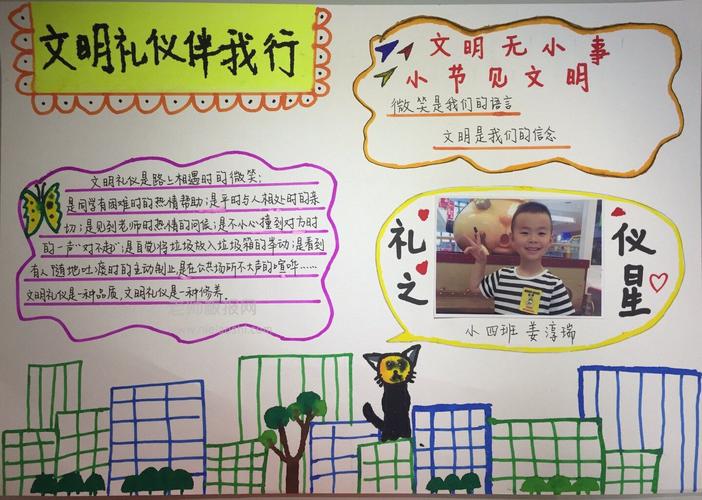 文明礼仪伴我行
文明无小事
小节见文明
微笑是我们的语言
文明是我们的信念
文明礼仪是路上相遇时的微笑;
是同学有困难时的热情帮助;是平时与人相处时的亲
切;是见到老师时的热情的问候;是不小心撞到对方时
的一声“对不起”;是自觉将垃圾放入垃圾箱的举动;是看到
有人随地吐痰时的主动制止,是在公共场所不大声的喧哗……
文明礼仪是一种品质,文明礼仪是一种修养.
礼仪
之星
小四班 姜淳瑞